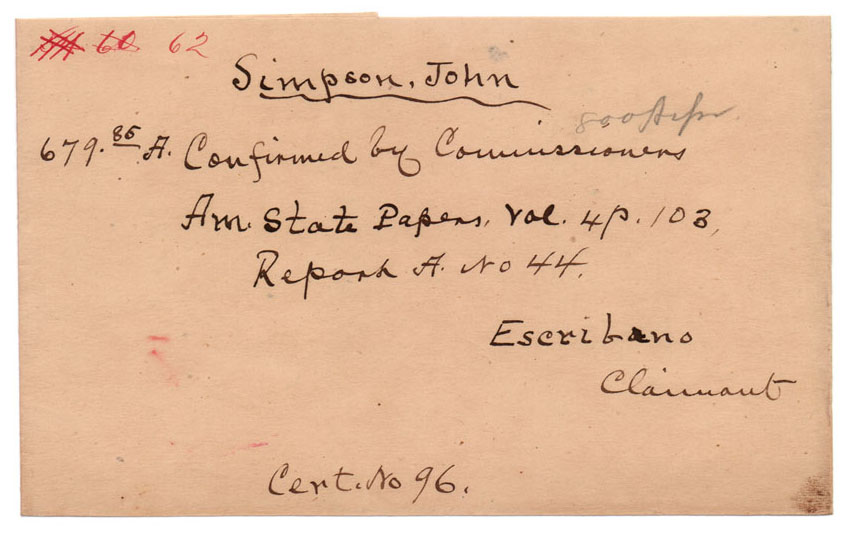 60 62
Simpson, John
679.85 A. Confirmed by Commissioners
Am. State Papers, Vol. 4 p. 103,
Report A. No 44.
Escribano
Claimant
Cert. No 96.